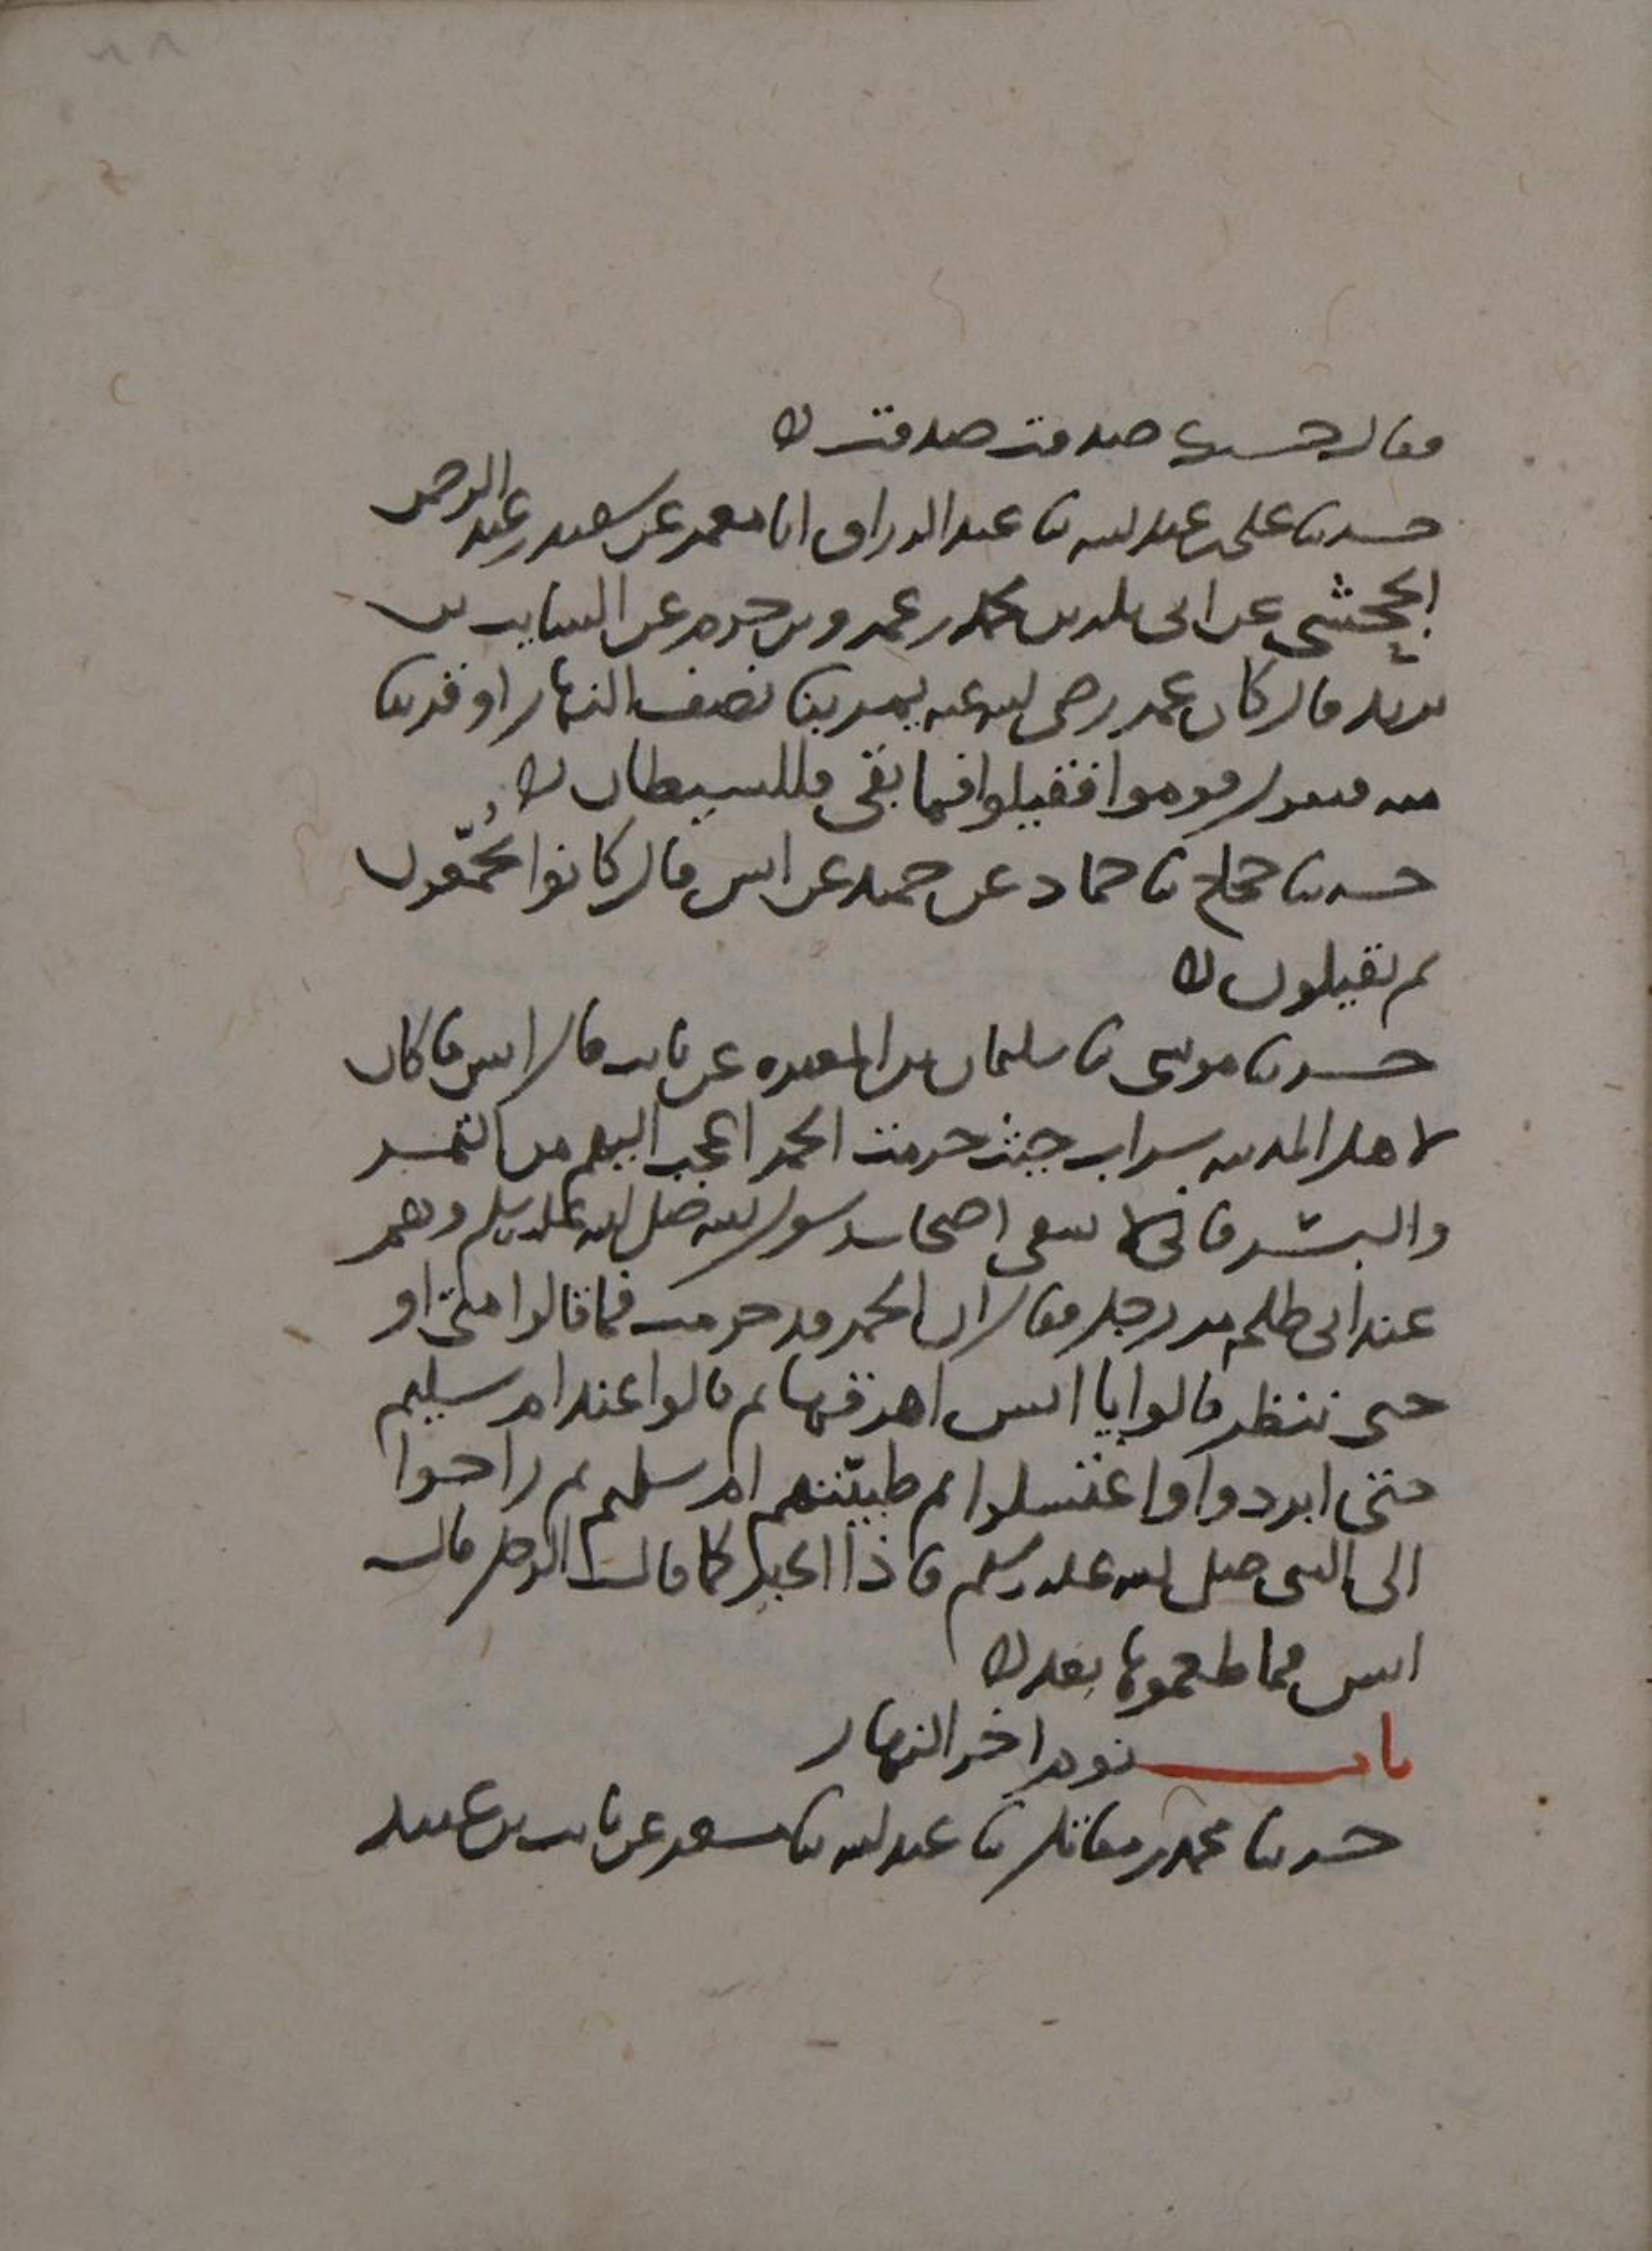 فقال حسبك صدقت صدقت
حدثنا علي بن عبد الله نا عبد الرزاق انا معمر عن سعيد بن عبد الرحمن
الجحشي عن ابي بكر بن محمد بن عمرو بن حزم عن السايب بن
يزيد قال كان عمر رضي الله عنه يمر بنا نصف النهار او قريبا
منه فيقول قوموا فقيلوا فما بقي فللشيطان
حدثنا حجاج نا حماد عن حميد عن انس قال كانوا يجمعون
ثم يقيلون
حدثنا موسى نا سليمان بن المغيرة عن ثابت قال انس ما كان
لاهل المدينه شراب حيث حرمت الخمر اعجب اليهم من التمر
والبسر فاني لاسقي اصحاب رسول الله صلى الله عليه وسلم وهم
عند ابي طلحه مر رجل فقال ان الخمر قد حرمت فما قالوا متى او
حتى ننظر قالوا يا انس اهرقها ثم قالوا عند ام سليم
حتى ابردوا واغتسلوا ثم طيبتهم ام سليم ثم راحوا
الى النبي صلى الله عليه وسلم فاذا الخبر كما قال الرجل قال
انس فما طعموها بعد
باب نوم اخر النهار
حدثنا محمد بن مقاتل نا عبد الله نا مسعر عن ثابت بن عبيد